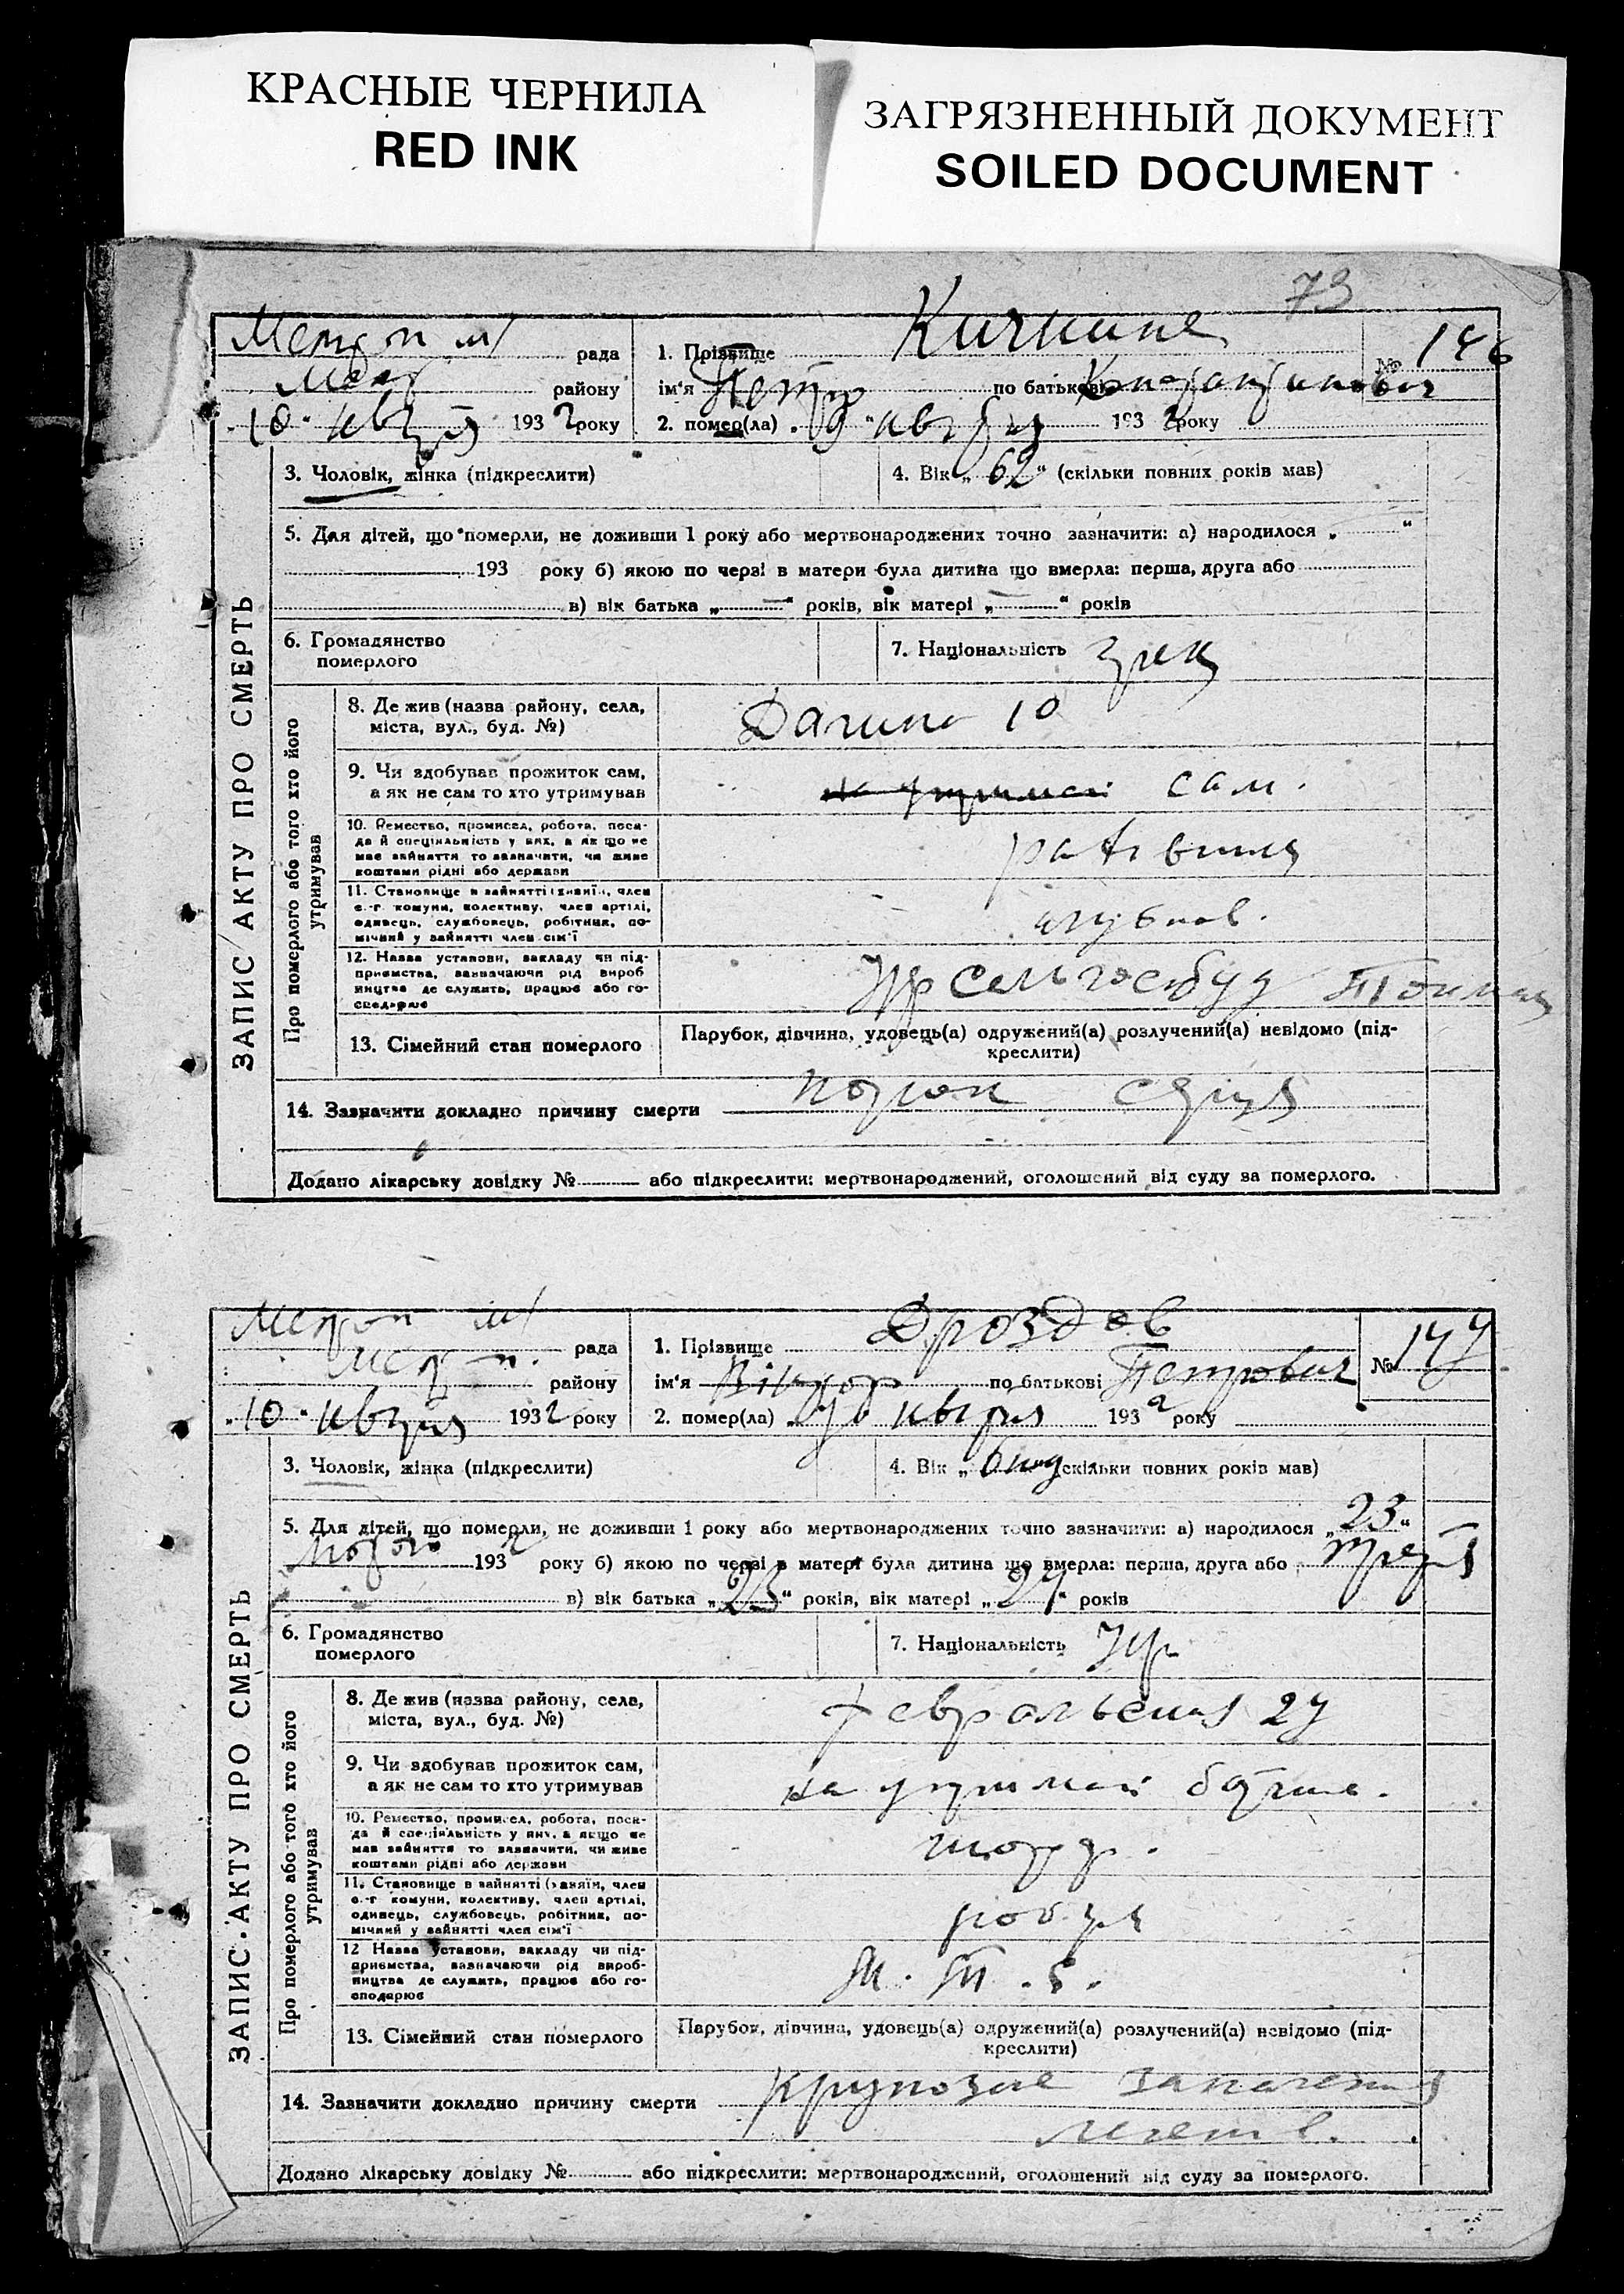 КРАСНЫЕ ЧЕРНИЛА
RED INK
ЗАГРЯЗНЕННЫЙ ДОКУМЕНТ
SOILED DOCUMENT
73
рада
1. Прізвище
№ 146
району
ім'я Петро по батькові
10 193 2 року
2. помер(ла) 193 2 року
ЗАПИС АКТУ ПРО СМЕРТЬ
3. Чоловік, жінка (підкреслити)
4. Вік „ 62 “ (скільки повних років мав)
5. Для дітей, що померли, не доживши 1 року або мертвонароджених точно зазначити: а) народилося „ “
193 року б) якою по черзі в матери була дитина що вмерла: перша, друга або
в) вік батька „ — “ років, вік матері „ — “ років
6. Громадянство
померлого
7. Національність грек
Про померлого або того хто його
утримував
8. Де жив (назва району, села,
міста, вул., буд. №)
10
9. Чи здобував прожиток сам,
а як не сам то хто утримував
сам.
10. Ремество, промисел, робота, поса-
да й спеціяльність у них, а як що не
мав зайняття то зазначити, чи живе
коштами рідні або держави
11. Становище в зайнятті (хазяїн, член
с.-г комуни, колективу, член артілі,
одинець, службовець, робітник, по-
мічний у зайнятті член сім'ї
12. Назва установи, закладу чи під-
приємства, зазначаючи рід вироб
ництва де служить, працює або го-
сподарює
13. Сімейний стан померлого
Парубок, дівчина, удовець(а) одружений(а) розлучений(а) невідомо (під-
креслити)
14. Зазначити докладно причину смерти порок серця
Додано лікарську довідку № або підкреслити: мертвонароджений, оголошений від суду за померлого.
рада
1. Прізвище Дроздов
№ 147
району
ім'я Віктор по батькові Петрович
10 193 2 року
2. помер(ла) 193 2 року
ЗАПИС АКТУ ПРО СМЕРТЬ
3. Чоловік, жінка (підкреслити)
4. Вік „ (скільки повних років мав)
5. Для дітей, що померли, не доживши 1 року або мертвонароджених точно зазначити: а) народилося „ 23 “
193 2 року б) якою по черзі в матері була дитина що вмерла: перша, друга або третя
в) вік батька „ “ років, вік матері „ “ років
6. Громадянство
померлого
7. Національність Укр.
Про померлого або того хто його
утримував
8. Де жив (назва району, села,
міста, вул., буд. №)
Февральская 27
9. Чи здобував прожиток сам,
а як не сам то хто утримував
на утриман батька.
10. Ремество, промисел, робота, поса-
да й спеціяльність у них, а якщо не
мав зайняття то зазначити, чи живе
коштами рідні або держави
11. Становище в зайнятті (хазяїн, член
с.-г комуни, колективу, член артілі,
одинець, службовець, робітник, по-
мічний у зайнятті член сім'ї
12 Назва установи, закладу чи під-
приємства, зазначаючи рід вироб-
ництва де служить, працює або го-
сподарює
13. Сімейний стан померлого
Парубок, дівчина, удовець(а) одружений(а) розлучений(а) невідомо (під-
креслити)
14. Зазначити докладно причину смерти крупозне запалення
легенів.
Додано лікарську довідку № або підкреслити: мертвонароджений, оголошений від суду за померлого.